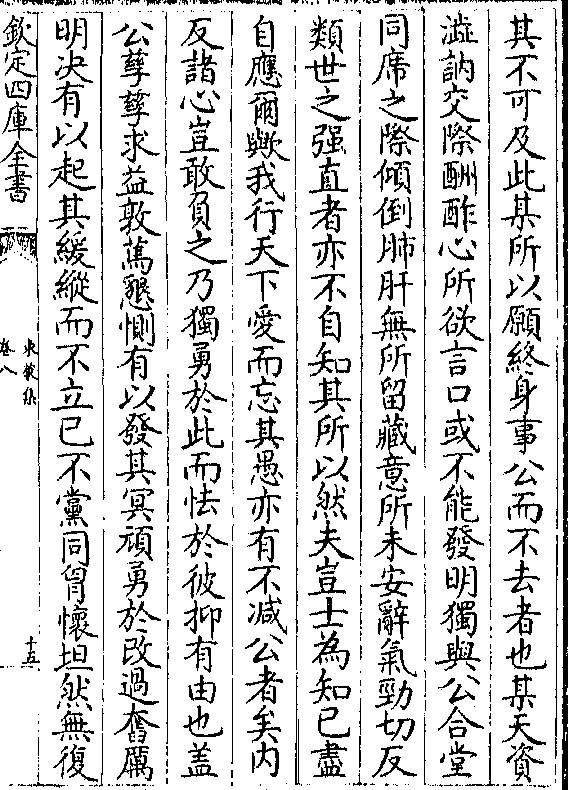 其不可及此某所以願終身事公而不去者也某天資
澁訥交際酬酢心所欲言口或不能發明獨與公合堂
同席之際傾倒肺肝無所留藏意所未安辭氣勁切反
類世之强直者亦不自知其所以然夫豈士為知已盡
自應爾歟我行天下愛而忘其愚亦有不减公者矣内
反諸心豈敢負之乃獨勇於此而怯於彼抑有由也盖
公孳孳求益敦篤懇惻有以發其冥頑勇於改過奮厲
明决有以起其緩縱而不立已不黨同胷懷坦然無復
欽定四庫全書
東萊集
卷八
十五